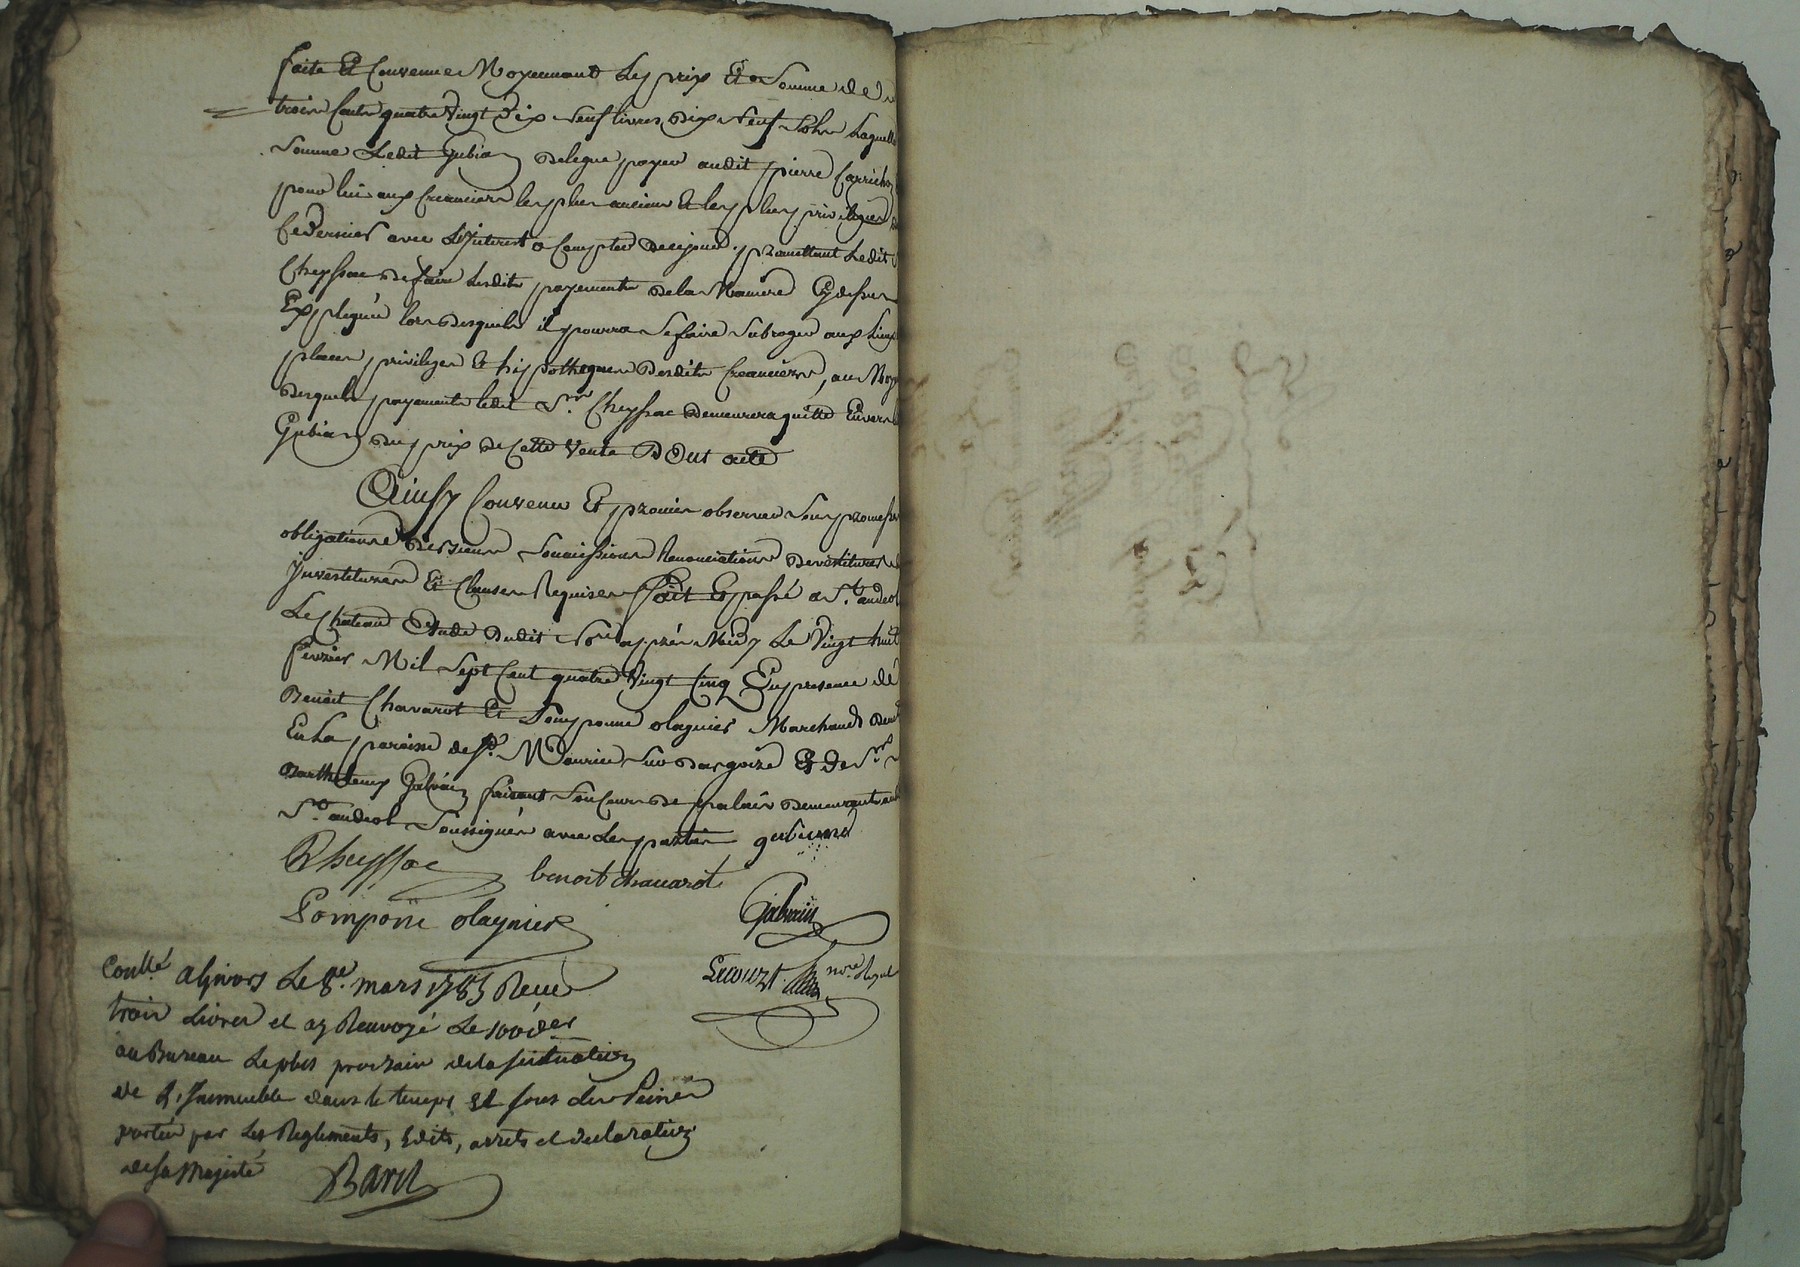 faite Et Convenue Moyennant Les prix Et Somme de
trois Cents quatre Vingt Dix Neuf livres Dix Neuf Sols Laquelle
Somme Ledit Gubian Delegue payer audit pierre
pour lui aux Creanciers les plus anciens Et les plus privilegiés
Ce dernier avec L'Interest a Compter de ce jour, promettant Ledit
Cheyssac De faire Lesdits payements De la Maniere Cy dessus
Expliquée lors Desquels il pourra Se faire Subroger aux Lieux
places privileges Et hipotheques Desdits Creanciers, au Moy
Desquels payements ledit Sr. Cheyssac Demeurera quitte Envers
Gubian du prix de Cette Vente Dont acte
Ainsy Convenu Et promis observer Sous promesses
obligations Des biens Soumissions Renonciations Devestitures
Investitures Et Clauses Requises fait Et passé a St. andeol
Le Chateau Etude Dudit Nore apprés Midy Le Vingt huit
fevrier Mil Sept Cent quatre Vingt Cinq En presence de
Benoit Chavarot Et Pomponne olagnier Marchands Demt
En La paroisse de St. Maurice Sur Dargoire Et de Sr.
Barthelemy Galvain faisant Son Cours De palais Demeurant
St. andeol Soussignés avec Les parties gubian
Cheyssac benoit chavarot
Pomponne olagnier Galvain
Contlé a Givors Le 8e. mars 1785 Recu Lecourt nore Royal
trois Livres et ay Renvoyé Le 100 der
au Bureau Le plus prochain de la situation
de L'Immeuble dans le temps et sous les Peines
portées par Les Reglements, Edits, arrets et declaration
de sa Majesté Barel